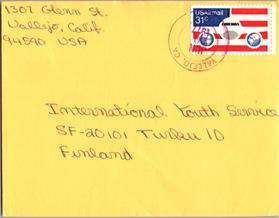 1307 Glenn St.
Vallejo, Calif.
94590 USA
USAirmail
31c
VALLEJO, CA
International Youth Service
SF-20101 Turku 10
Finland